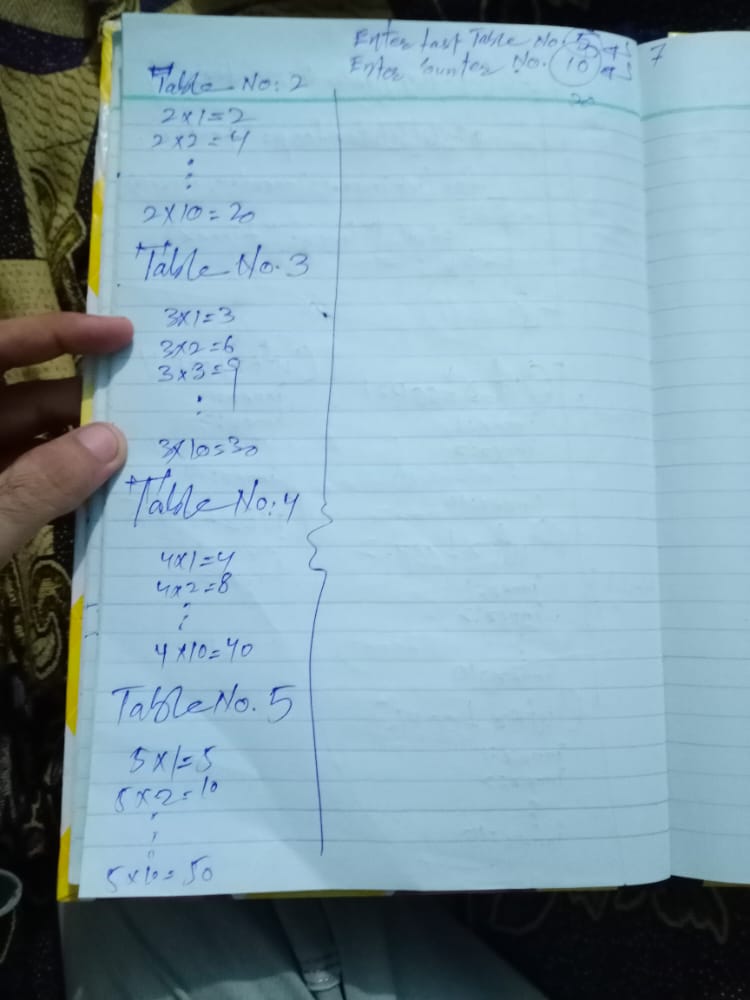 Enter last Table No. 5
Enter counter No. 10
7
20
Table No: 2
2x1=2
2x2=4
⋮
2x10=20
Table No. 3
3x1=3
3x2=6
3x3=9
⋮
3x10=30
Table No: 4
4x1=4
4x2=8
⋮
4x10=40
Table No. 5
5x1=5
5x2=10
⋮
5x10=50